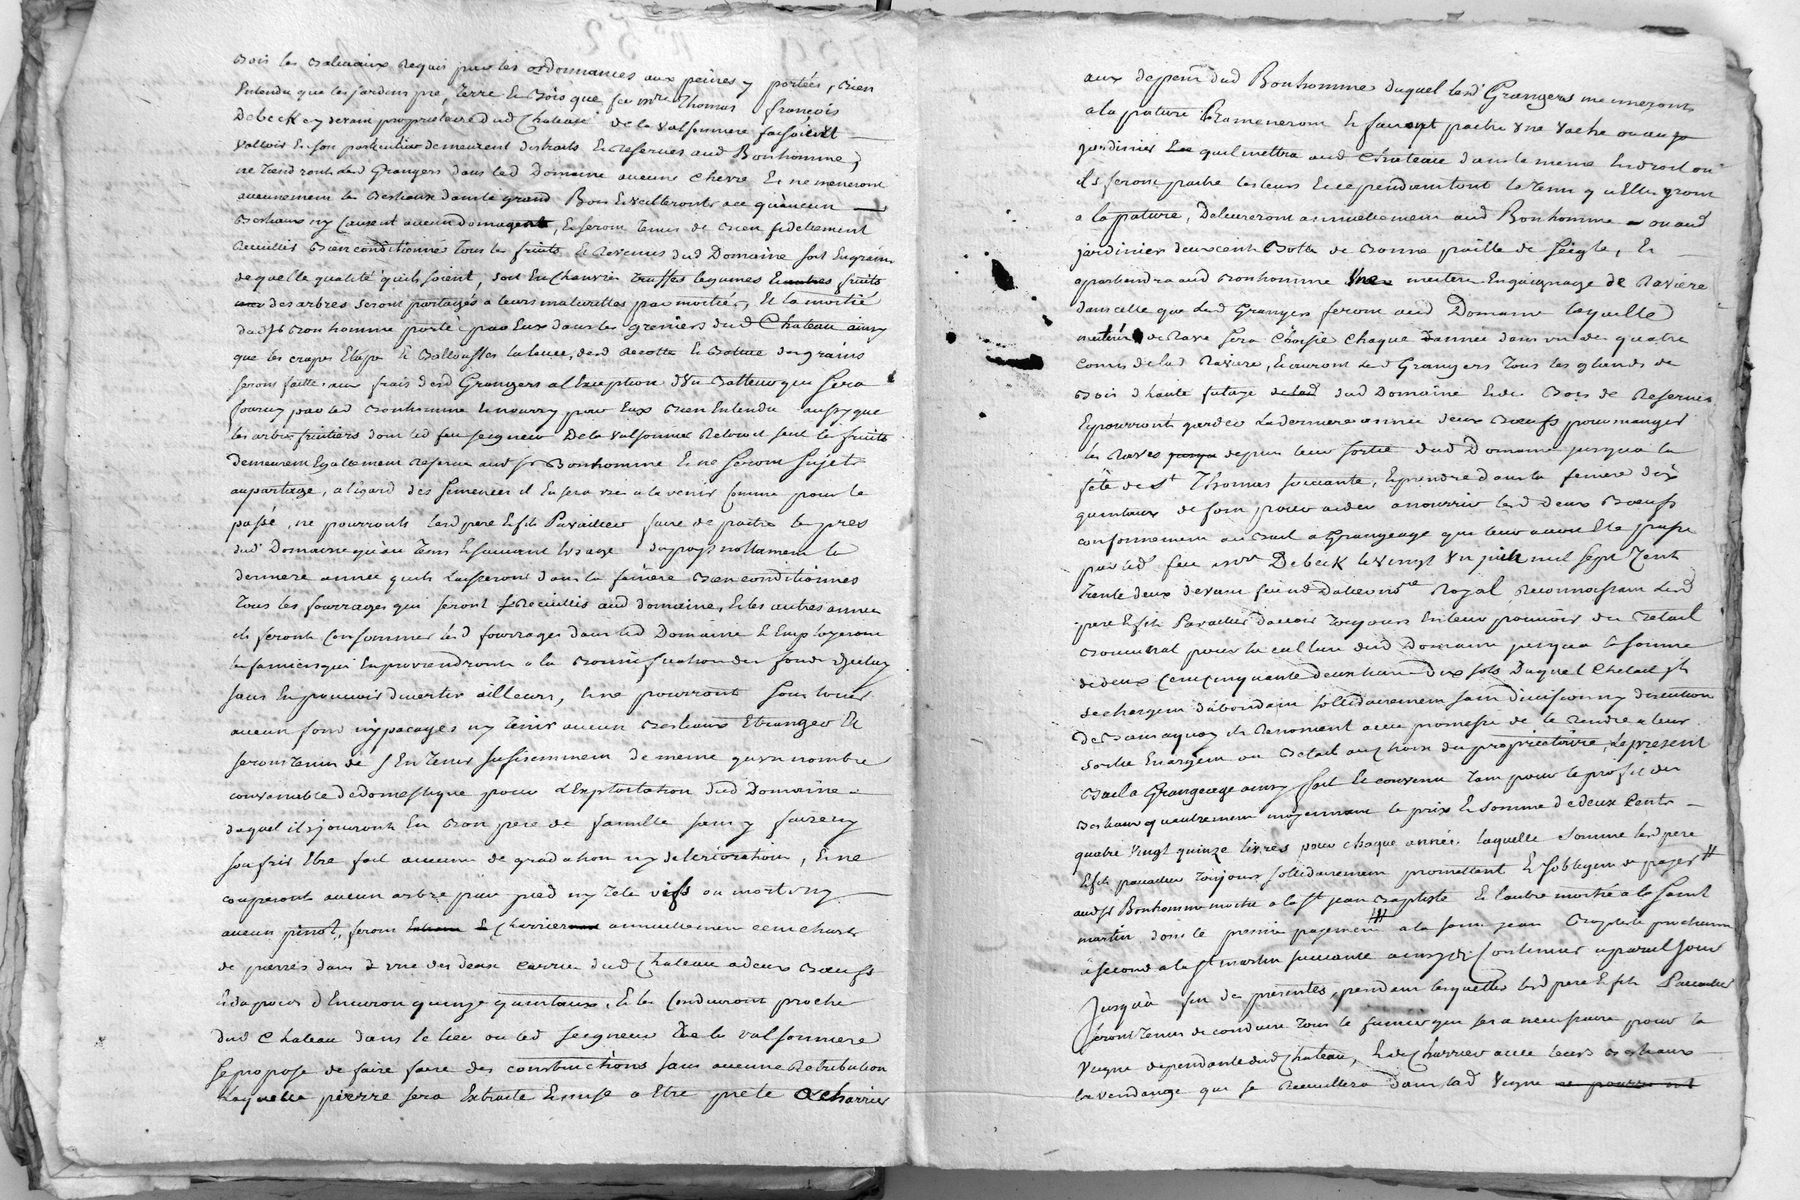 bois les Baliveaux requis par les ordonnances aux peines y portées, Bien
Entendu que les jardins pré, Terre Et Bois que feu mre Thomas françois
Debeck cy devant proprietaire dud Chateau de la Valsonniere faisoient
Valloir En son particulier demeurent distraits Et Reservés aud Bonhomme,
ne Tiendront lesd Grangers dans led Domaine aucune chevre Et ne meneront
aucunement les Bestiaux dans le grand Bois Et veilleront a ce qu'aucun
Bestiaux ny Causent aucun domage, Et seront Tenus de Bien fidellement
Recuillir Bien conditionnés Tous les fruits Et Revenus dud Domaine soit En grains
de quelle qualité quils soient, soit En Chanvre Truffes legumes Et autres fruits
des arbres seront partagés a leurs maturittés par moitié, Et la moitié
dud sr Bonhomme porté par Eux dans les greniers dud Chateau ainsy
que les crapes Etape Et Balloufles la levée, desd Recolte Et Batture des grains
seront faitte aux frais desd Grangers a l'Exception d'Un Batteur qui sera
fourny par led Bonhomme Et nourry par Eux Bien Entendu aussy que
les arbres fruitiers dont led feu seigneur De la Valsonniere Retiroit seul les fruits
demeurent Egallement Reservés aud sr Bonhomme Et ne seront sujets
au partage, a l'egard des semences il En sera usé a l'avenir Comme pour le
passé, ne pourronts lesd pere Et fils Pavailler faire de paitre les prés
dud Domaine qu'au Tems Et suivant l'usage du pays nottament la
derniere année quils Laisseront dans la feniere Bien conditionnés
Tous les fourrages qui seront Recuillis aud domaine, Et les autres années
ils feront Consommer lesd fourrages dans led Domaine Et Employeront
les fumiers qui En proviendronts a la Bonnification des fonds d'Iceluy
sans En pouvoir divertir ailleurs, Et ne pourront sous louer
aucun fond ny pacages ny Tenir aucun Bestiaux Etranger Et
seront Tenus de s'En Tenir suffisemment de meme qu'un nombre
convenable De domestique pour L'Exploitation dud Domaine
duquel ils jouiront En Bon pere de famille sans y faire ny
soufrir Etre fait aucune de gradation ny deterioration, Et ne
couperont aucun arbre par pied ny Tete vifs ou mort ny
aucun pinot, seront Charrier annuellement cent chars
de pierres dans d'une des deux Carriere dud Chateau a deux Bœufs
Et du poids d'Environ quinze quintaux, Et les Conduiront proche
dud Chateau dans le lieu ou led seigneur De la Valsonniere
se propose de faire faire des constructions sans aucune Retribution
Laquelle pierre sera Extraite Et mise a Etre prete a charrier
aux depens dud Bonhomme duquel lesd Grangers meneront
a la pature Et Rameneront Et feront paitre Une Vache ou au
jardinier quil mettra aud Chateau dans le meme Endroit ou
ils feront paitre les leurs Et ce pendant tout le Tems qu'Elles yront
a la pature, Delivreront annuellement aud Bonhomme ou aud
jardinier deux cents Botte de Bonne paille de seigle, Et
apartiendra aud Bonhomme Une meitere En quignage de Raviere
dans celle que lesd Grangers feront aud Domaine laquelle
meitere de Rave sera Choisie chaque année dans un des quatre
Coins de lad Raviere, Et auront lesd Grangers Tous les glands de
Bois d'haute futaye dud Domaine Et des Bois de Reserves
Et pourronts garder La derniere année deux Bœufs pour manger
les Raves depuis leur sortie dud Domaine jusqu'a la
fête de St Thomas suivante, Et prendre dans la feniere dix
quintaux de foin pour aider a nourrir lesd deux Bœufs
conformement au Bail a Grangeage qui leur avoit Ete passé
par led feu mre Debeck le vingt Un juin mil sept Cent
Trente deux devant feu me Dalleon nre Royal, Reconnoissant lesd
pere Et fils Pavailler d'avoir Toujours En leur pouvoir du Betail
Bouvinal pour la culture dud Domaine jusqu'a la somme
de deux Cent cinquante deux livres dix sols Duquel Chetail ils
se chargent d'abondant sollidairement sans division ny discution
De Biens a quoy ils Renoncent avec promesse de le Rendre a leur
sortie En argent ou Betail au choix du proprietaire, Le present
Bail a Grangeage ainsy fait Et convenu Tant pour le profit des
Bestiaux qu'autrement moyennant le prix Et somme de deux Cents
quatre Vingt quinze livres pour chaque année laquelle somme lesd pere
Et fils pavailler Toujours sollidairement promettent Et s'obligent de payer #
aud sr Bonhomme moitié a la St jean Baptiste Et l'autre moitié a la saint
martin dont le premier payement # a la saint jean Baptiste prochaine
le second a la St martin suivante ainsy Continuer a pareil jour
Jusqu'à fin des présentes, pendant lesquelles lesd pere Et fils Pavailler
seront Tenus de conduire Tous le fumier qui sera necessaire pour la
Vigne dependante dud Chateau, Et de Charrier avec leurs Bestiaux
la vendange qui se Recuillera dans lad Vigne ne pourront